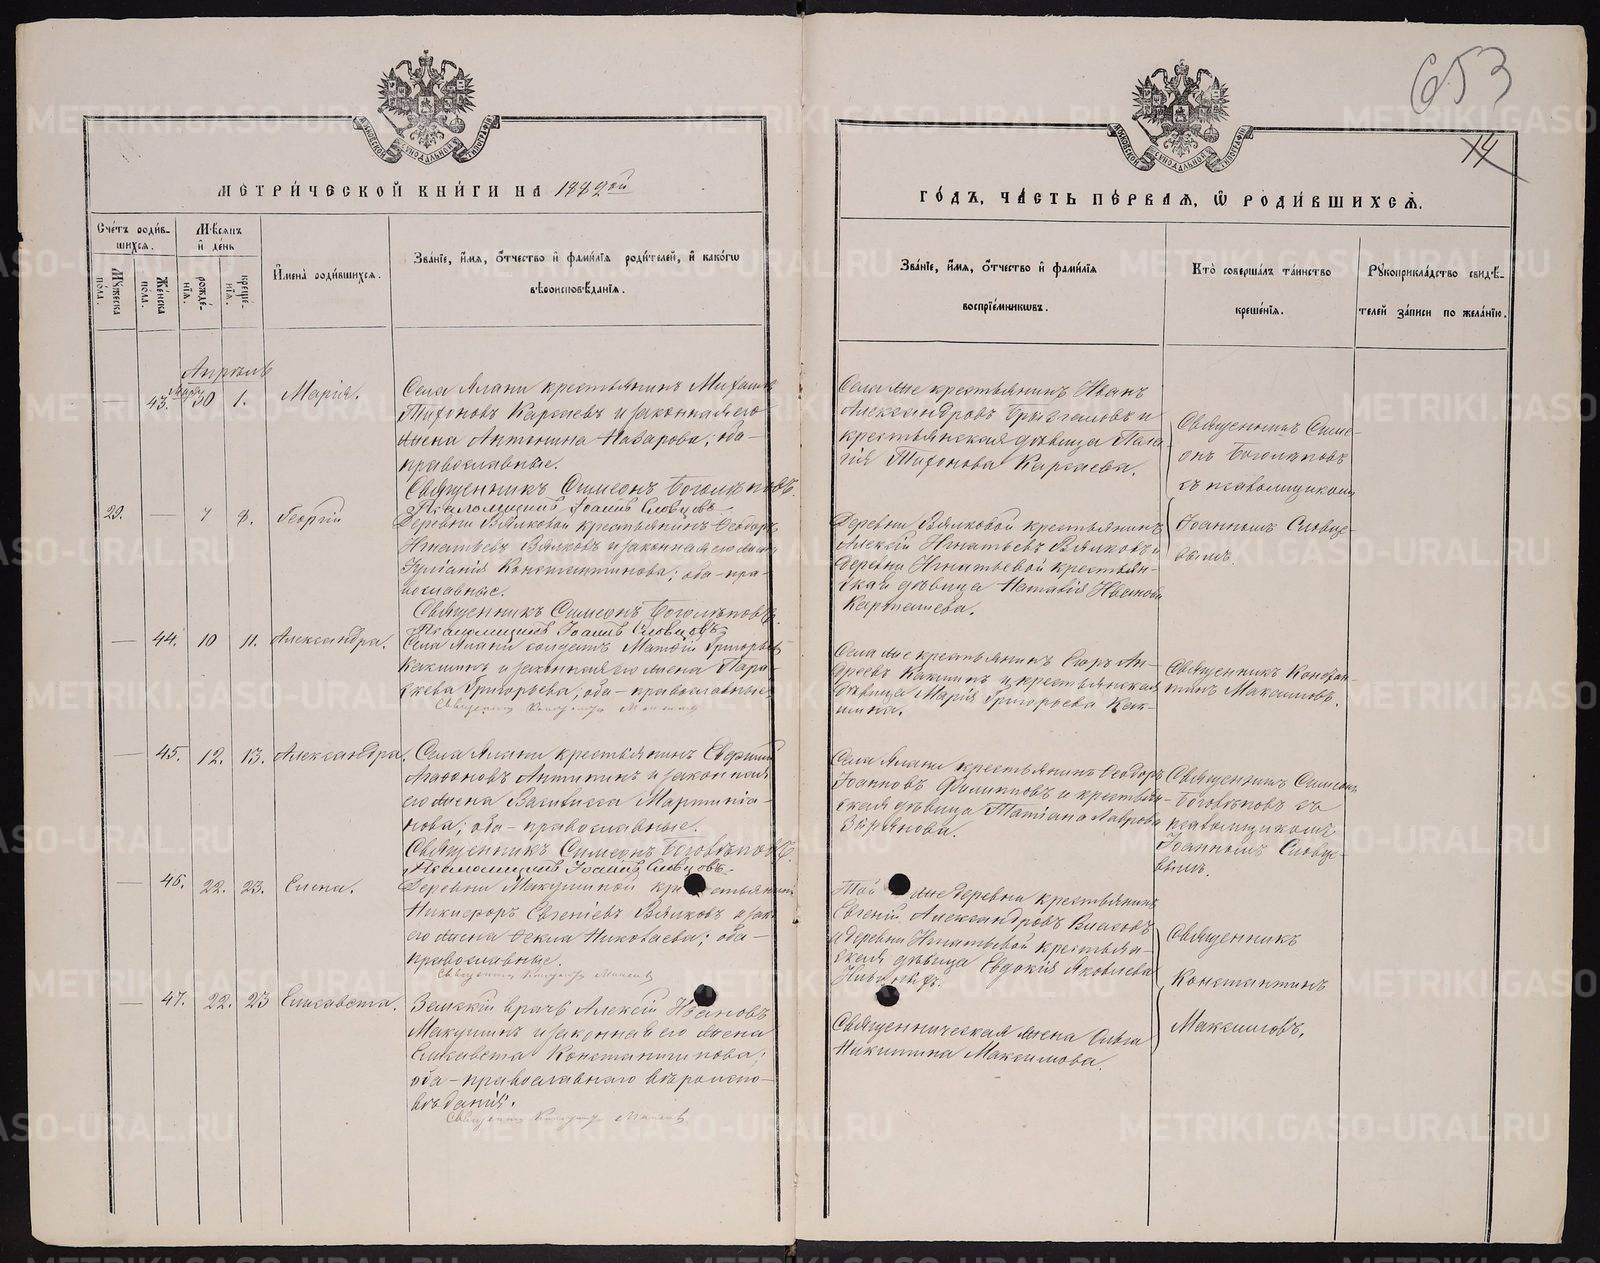 653
14
МЕТРИЧЕСКОЙ КНИГИ НА 1882ой
ГОДЪ, ЧАСТЬ ПЕРВАЯ, Ѡ РОДИВШИХСЯ.
Счетъ родив-
шихся.
Мѣсяцъ
и день
Мужеска
пола.
Женска
пола.
рожде-
нія.
креще-
нія.
Имена родившихся.
Званіе, имя, отчество и фамилія родителей, и какогѡ
вѣроисповѣданія.
Званіе, имя, отчество и фамилія
воспріемникѡвъ.
Кто совершалъ таинство
крещенія.
Рукоприкладство свидѣ-
телей записи по желанію.
Апрѣль
43. Марта 30 1. Марія.
Села Ялани крестьянинъ Михаилъ
Тихоновъ Каргаевъ и законная его
жена Антонина Назарова; оба
православные.
Священникъ Симеонъ Боголѣповъ.
Псаломщикъ Іоаннъ Словцовъ.
Села же крестьянинъ Иванъ
Александровъ и
крестьянская дѣвица Пела-
гія Тихонова Каргаева.
Священникъ Симе-
онъ Боголѣповъ
съ псаломщикомъ
Іоанномъ Словцо-
вымъ.
29. 7 8. Георгій
Деревни Вялковой крестьянинъ Ѳеодоръ
Игнатьевъ Вялковъ и законная его жена
Константинова; оба пра-
вославные.
Священникъ Симеонъ Боголѣповъ.
Псаломщикъ Іоаннъ Словцовъ.
Деревни Вялковой крестьянинъ
Алексій Игнатьевъ Вялковъ и
деревни Игнатьевой крестьян-
ская дѣвица Наталія Иванова
44. 10 11. Александра.
Села Ялани солдатъ Матѳій Григорьевъ
Какшинъ и законная его жена Пара-
скева Григорьева, оба православные
Священникъ Константинъ Максимовъ
Села же крестьянинъ Егоръ Ан-
дреевъ Какшинъ и крестьянская
дѣвица Марія Григорьева Как-
шина.
Священникъ Констан-
тинъ Максимовъ.
45. 12. 13. Александра.
Села Ялани крестьянинъ Евѳимій
Агаѳоновъ Антипинъ и законная
его жена Василисса Мартиніа-
нова; оба православные.
Священникъ Симеонъ Боголѣповъ.
Псаломщикъ Іоаннъ Словцовъ.
Села Ялани крестьянинъ Ѳеодоръ
Іоанновъ Филипповъ и крестьян-
ская дѣвица Татіана Лаврова
Зырянова.
Священникъ Симеонъ
Боголѣповъ съ
псаломщикомъ
Іоанномъ Словцо-
вымъ.
46. 22. 23. Елена.
Деревни Макушиной крестьянинъ
Никифоръ Евгеніевъ Вялковъ и зак.
его жена Ѳекла Николаева; оба
православные.
Священникъ Константинъ Максимовъ
Той же деревни крестьянинъ
Евгеній Александровъ Власовъ
и деревни Игнатьевой крестьян-
ская дѣвица Евдокія Яковлева
Священникъ
Константинъ
Максимовъ.
47. 22. 23 Елисавета.
Земскій врачъ Алексій Ивановъ
Макушинъ и законная его жена
Елисавета Константинова;
оба православнаго вѣроиспо-
вѣданія.
Священникъ Константинъ Максимовъ
Священническая жена Ольга
Никитина Максимова.